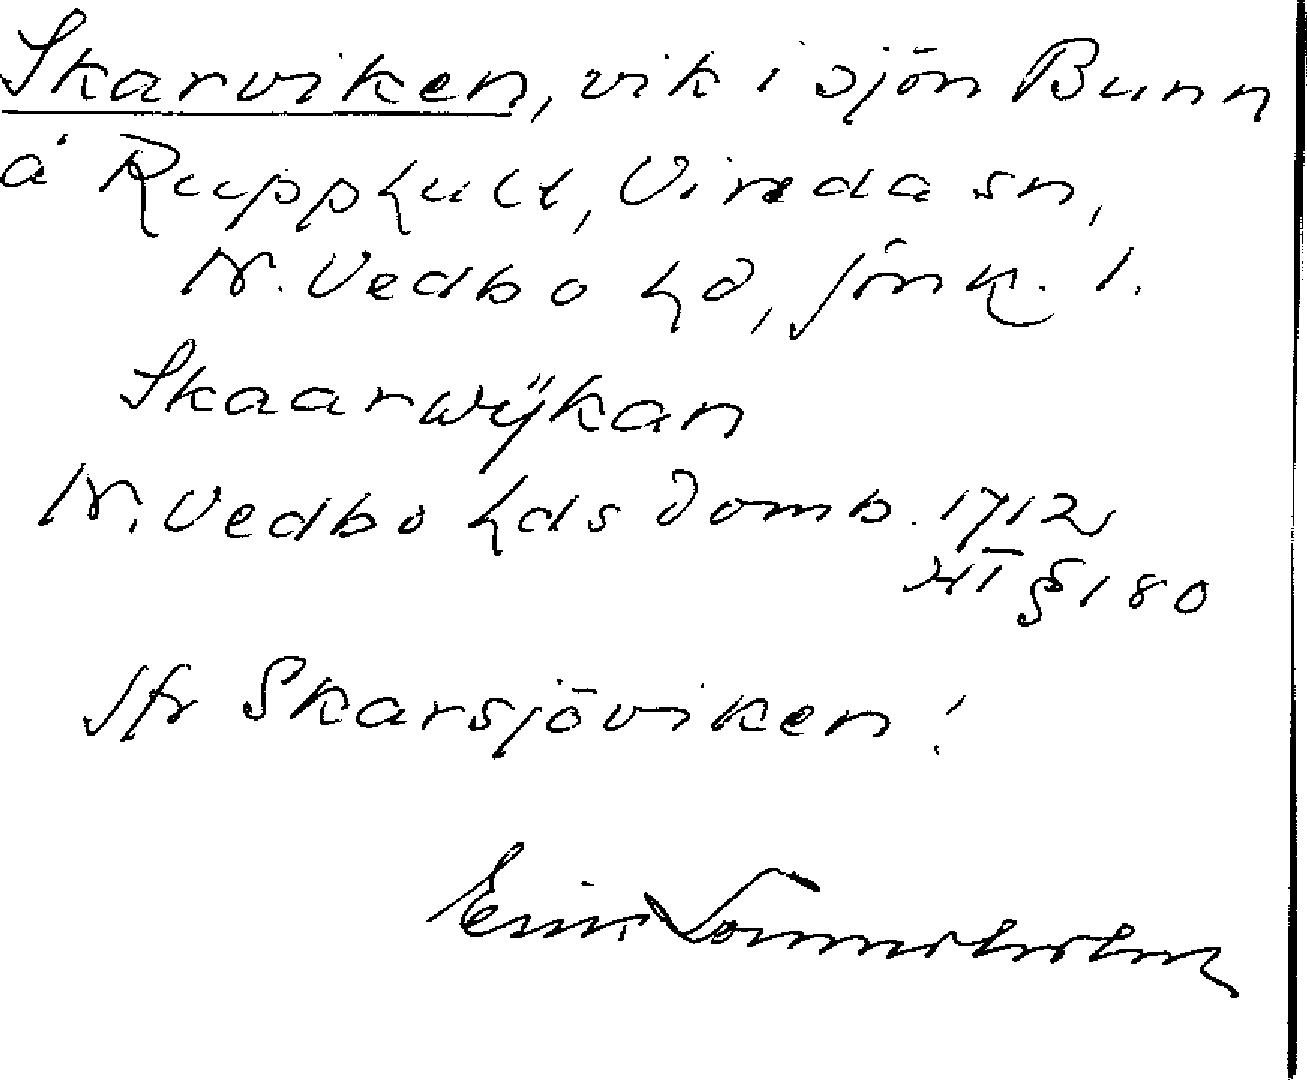 Skarviken, vik i sjön Bunn
å Rupphult, Vireda sn,
N. Vedbo hd, Jönk. l.
Skaarwÿkan
N. Vedbo hds domb. 1712
HT § 180
Jfr Skarsjöviken!